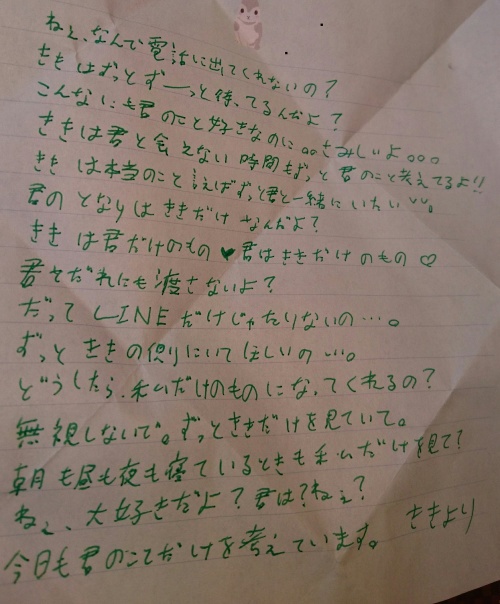 ねぇ、なんで電話に出てくれないの?
ききはずっとずーっと待ってるんだよ?
こんなにも君のこと好きなのに。。さみしいよ。。。
ききは君と会えない時間もずっと君のこと考えてるよ!!
ききは本当のこと言えばずっと君と一緒にいたい
君のとなりはききだけなんだよ?
ききは君だけのもの♥君はききだけのもの♡
君をだれにも渡さないよ?
だってLINEだけじゃたりないの…。
ずっとききの側りにいてほしいの…。
どうしたら、私だけのものになってくれるの?
無視しないで。ずっとききだけを見ていて。
朝も昼も夜も寝ているときも私だけを見て?
ねぇ、大好きだよ?君は?ねぇ?
今日も君のことだけを考えています。 ききより